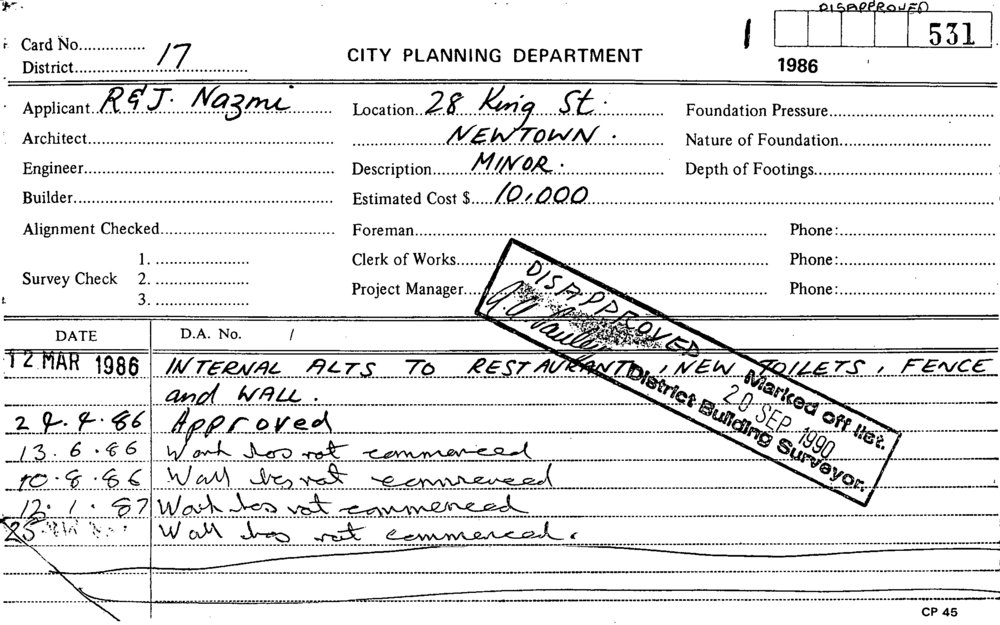 DISAPPROVED
1 531
Card No.
District 17
CITY PLANNING DEPARTMENT
1986
Applicant R & J. Nazmi
Location 28 King St.
Foundation Pressure
Architect
NEWTOWN.
Nature of Foundation
Engineer
Description MINOR.
Depth of Footings
Builder
Estimated Cost $ 10,000
Alignment Checked
Foreman
Phone:
Survey Check
1.
2.
3.
Clerk of Works
Phone:
Project Manager
Phone:
DISAPPROVED
Marked off list.
20 SEP 1990
District Building Surveyor.
DATE D.A. No. /
12 MAR 1986 INTERNAL ALTS TO RESTAURANT, NEW TOILETS, FENCE
and WALL.
24.4.86 Approved
13.6.86 Work has not commenced
10.8.86 Wall has not commenced
12.1.87 Work has not commenced
25 Wall has not commenced.
CP 45